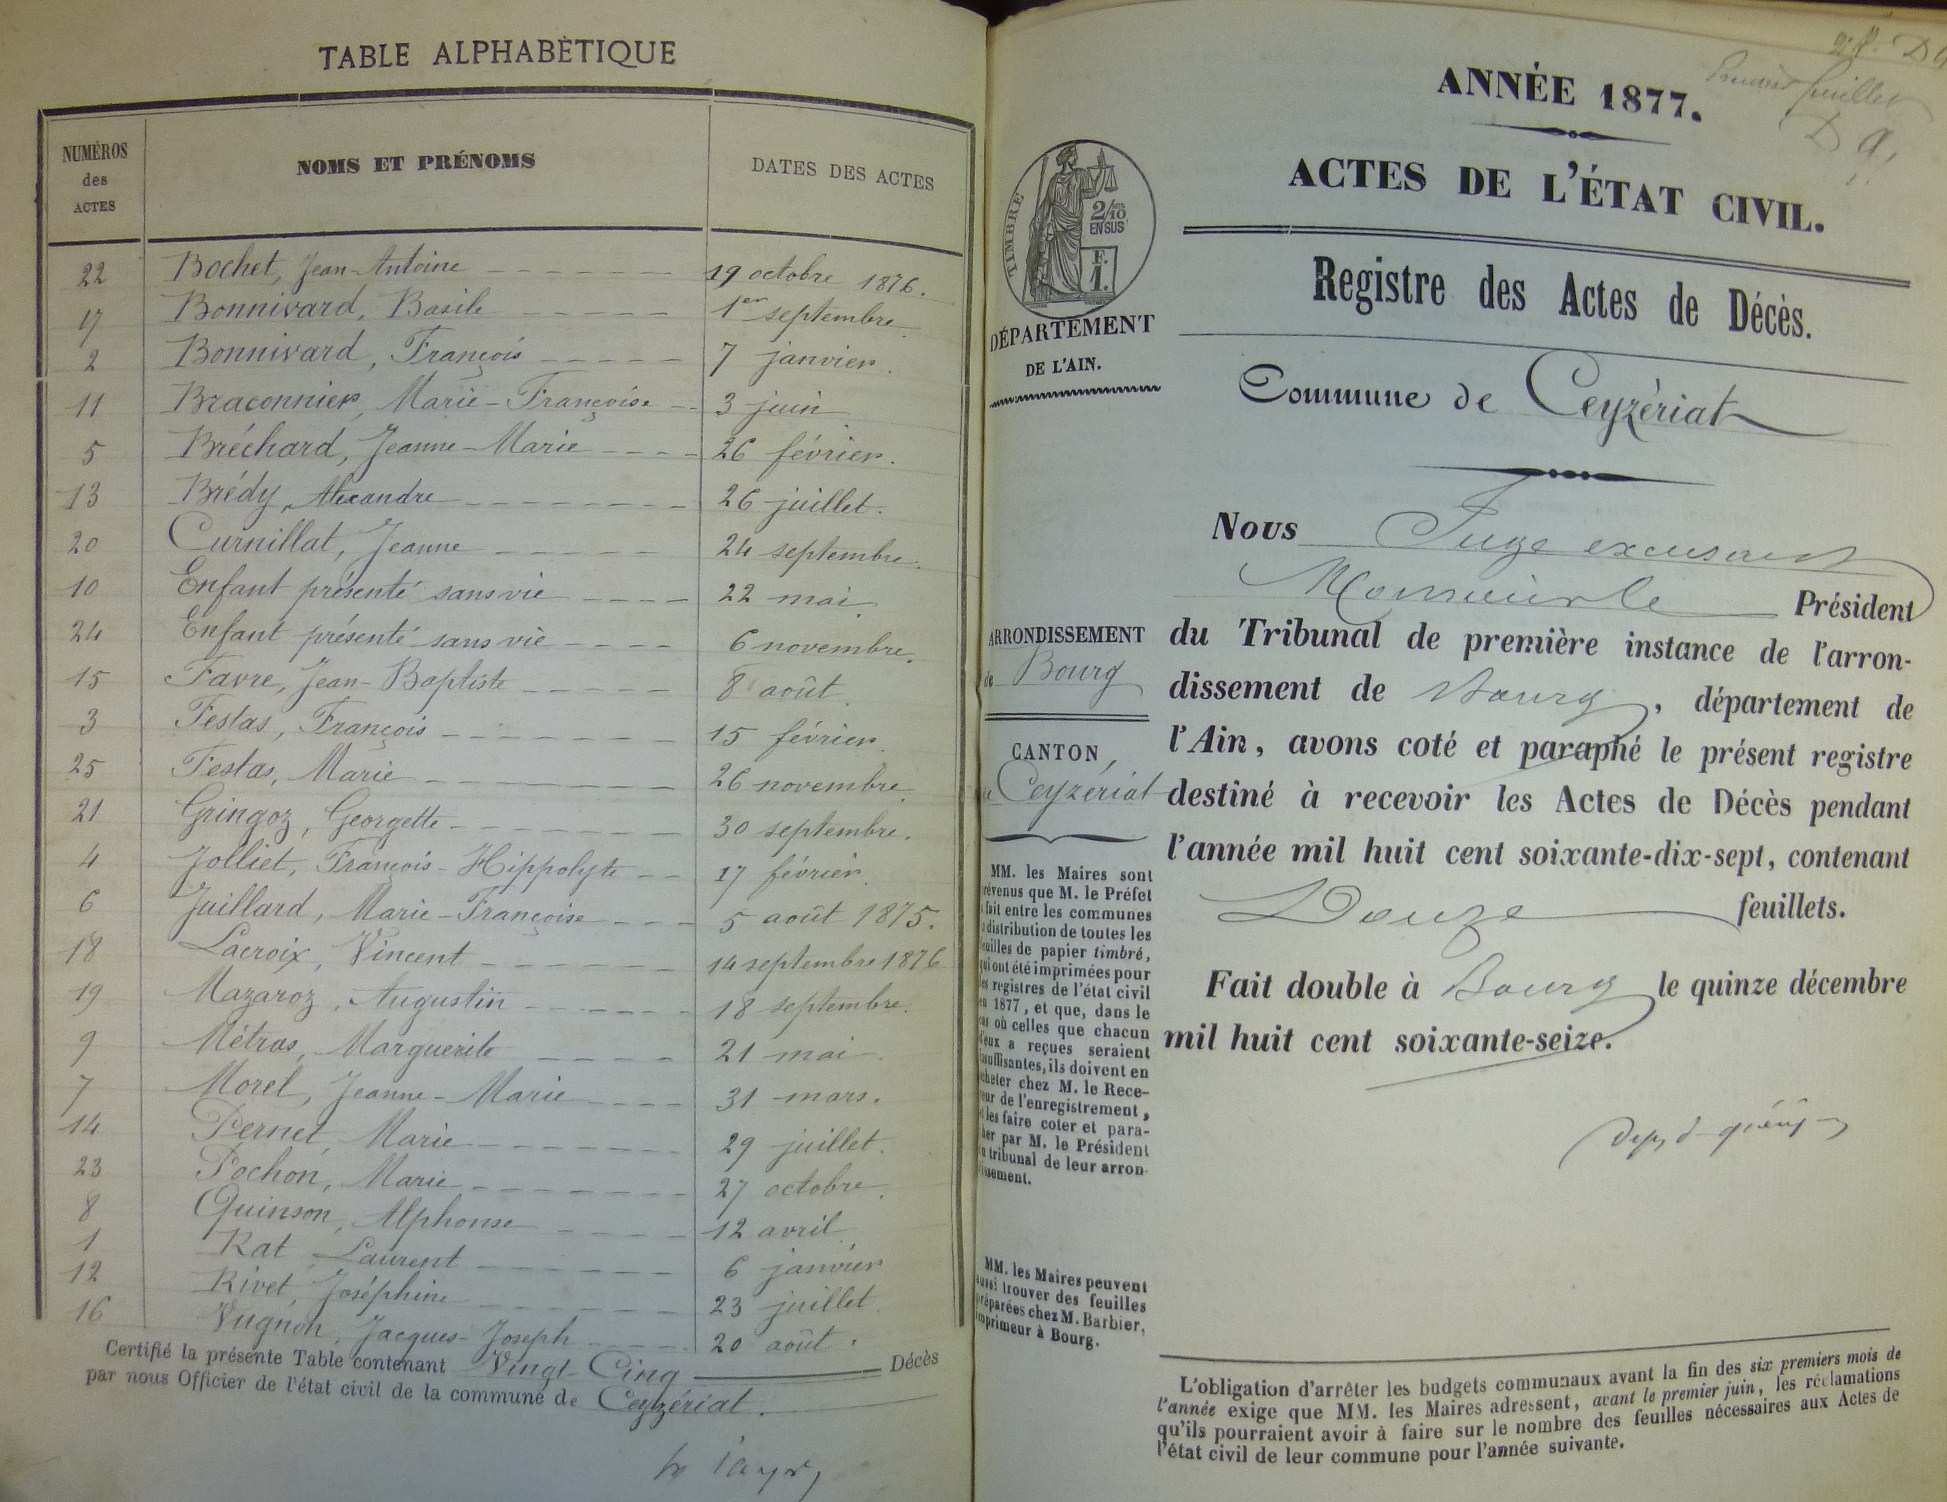 TABLE ALPHABÈTIQUE
NUMÉROS des ACTES NOMS ET PRÉNOMS DATES DES ACTES
22 Bochet, Jean-Antoine 19 octobre 1876.
17 Bonnivard, Basile 1er septembre.
2 Bonnivard, François 7 janvier.
11 Braconnier, Marie-Françoise 3 juin
5 Bréchard, Jeanne-Marie 26 février.
13 Brédy, Alexandre 26 juillet.
20 Curnillat, Jeanne 24 septembre.
10 Enfant présenté sans vie 22 mai
24 Enfant présenté sans vie 6 novembre.
15 Favre, Jean-Baptiste 8 août.
3 Festas, François 15 février.
25 Festas, Marie 26 novembre.
21 Gringoz, Georgette 30 septembre.
4 Jolliet, François-Hippolyte 17 février.
6 Juillard, Marie-Françoise 5 août 1875.
18 Lacroix, Vincent 14 septembre 1876
19 Mazaroz, Augustin 18 septembre.
9 Métras, Marguerite 21 mai.
7 Morel, Jeanne-Marie 31 mars.
14 Pernet, Marie 29 juillet.
23 Pochon, Marie 27 octobre.
8 Quinson, Alphonse 12 avril
1 Rat Laurent 6 janvier
12 Rivet, Joséphine 23 juillet.
16 Vugnon, Jacques-Joseph 20 août.
Certifié la présente Table contenant Vingt-Cinq Décès
par nous Officier de l'état civil de la commune de Ceyzériat.
2e D 9
Premier feuillet
D 9.
ANNÉE 1877.
ACTES DE L'ÉTAT CIVIL.
TIMBRE
2/10
EN SUS
F.
1.
Registre des Actes de Décès.
DÉPARTEMENT
DE L'AIN.
Commune de Ceyzériat
Nous Juge excusant
Monsieur le Président
du Tribunal de première instance de l'arron-
dissement de Bourg, département de
l'Ain, avons coté et paraphé le présent registre
destiné à recevoir les Actes de Décès pendant
l'année mil huit cent soixante-dix-sept, contenant
Douze feuillets.
Fait double à Bourg le quinze décembre
mil huit cent soixante-seize.
ARRONDISSEMENT
de Bourg
CANTON
Ceyzériat
MM. les Maires sont
prévenus que M. le Préfet
fait entre les communes
distribution de toutes les
feuilles de papier timbré,
qui ont été imprimées pour
les registres de l'état civil
en 1877, et que, dans le
cas où celles que chacun
d'eux a reçues seraient
insuffisantes, ils doivent en
acheter chez M. le Rece-
veur de l'enregistrement,
et les faire coter et para-
pher par M. le Président
du tribunal de leur arron-
dissement.
MM. les Maires peuvent
aussi trouver des feuilles
préparées chez M. Barbier,
imprimeur à Bourg.
L'obligation d'arrêter les budgets communaux avant la fin des six premiers mois de
l'année exige que MM. les Maires adressent, avant le premier juin, les réclamations
qu'ils pourraient avoir à faire sur le nombre des feuilles nécessaires aux Actes de
l'état civil de leur commune pour l'année suivante.